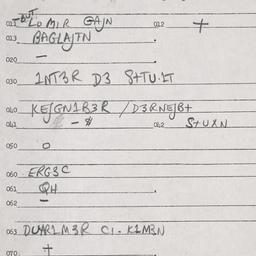 LOMIR GAJN 012 +
013 BAGLAJTN
020 —
030 1NT3R D3 S+TU.LT
040 KEJGN1B3R / D3RNEJB+
041 — $ 042 S+UXN
050 O
060 ERG3C
061 QH
062 —
063 DUAR1M3R C1-K1M3N
070 +